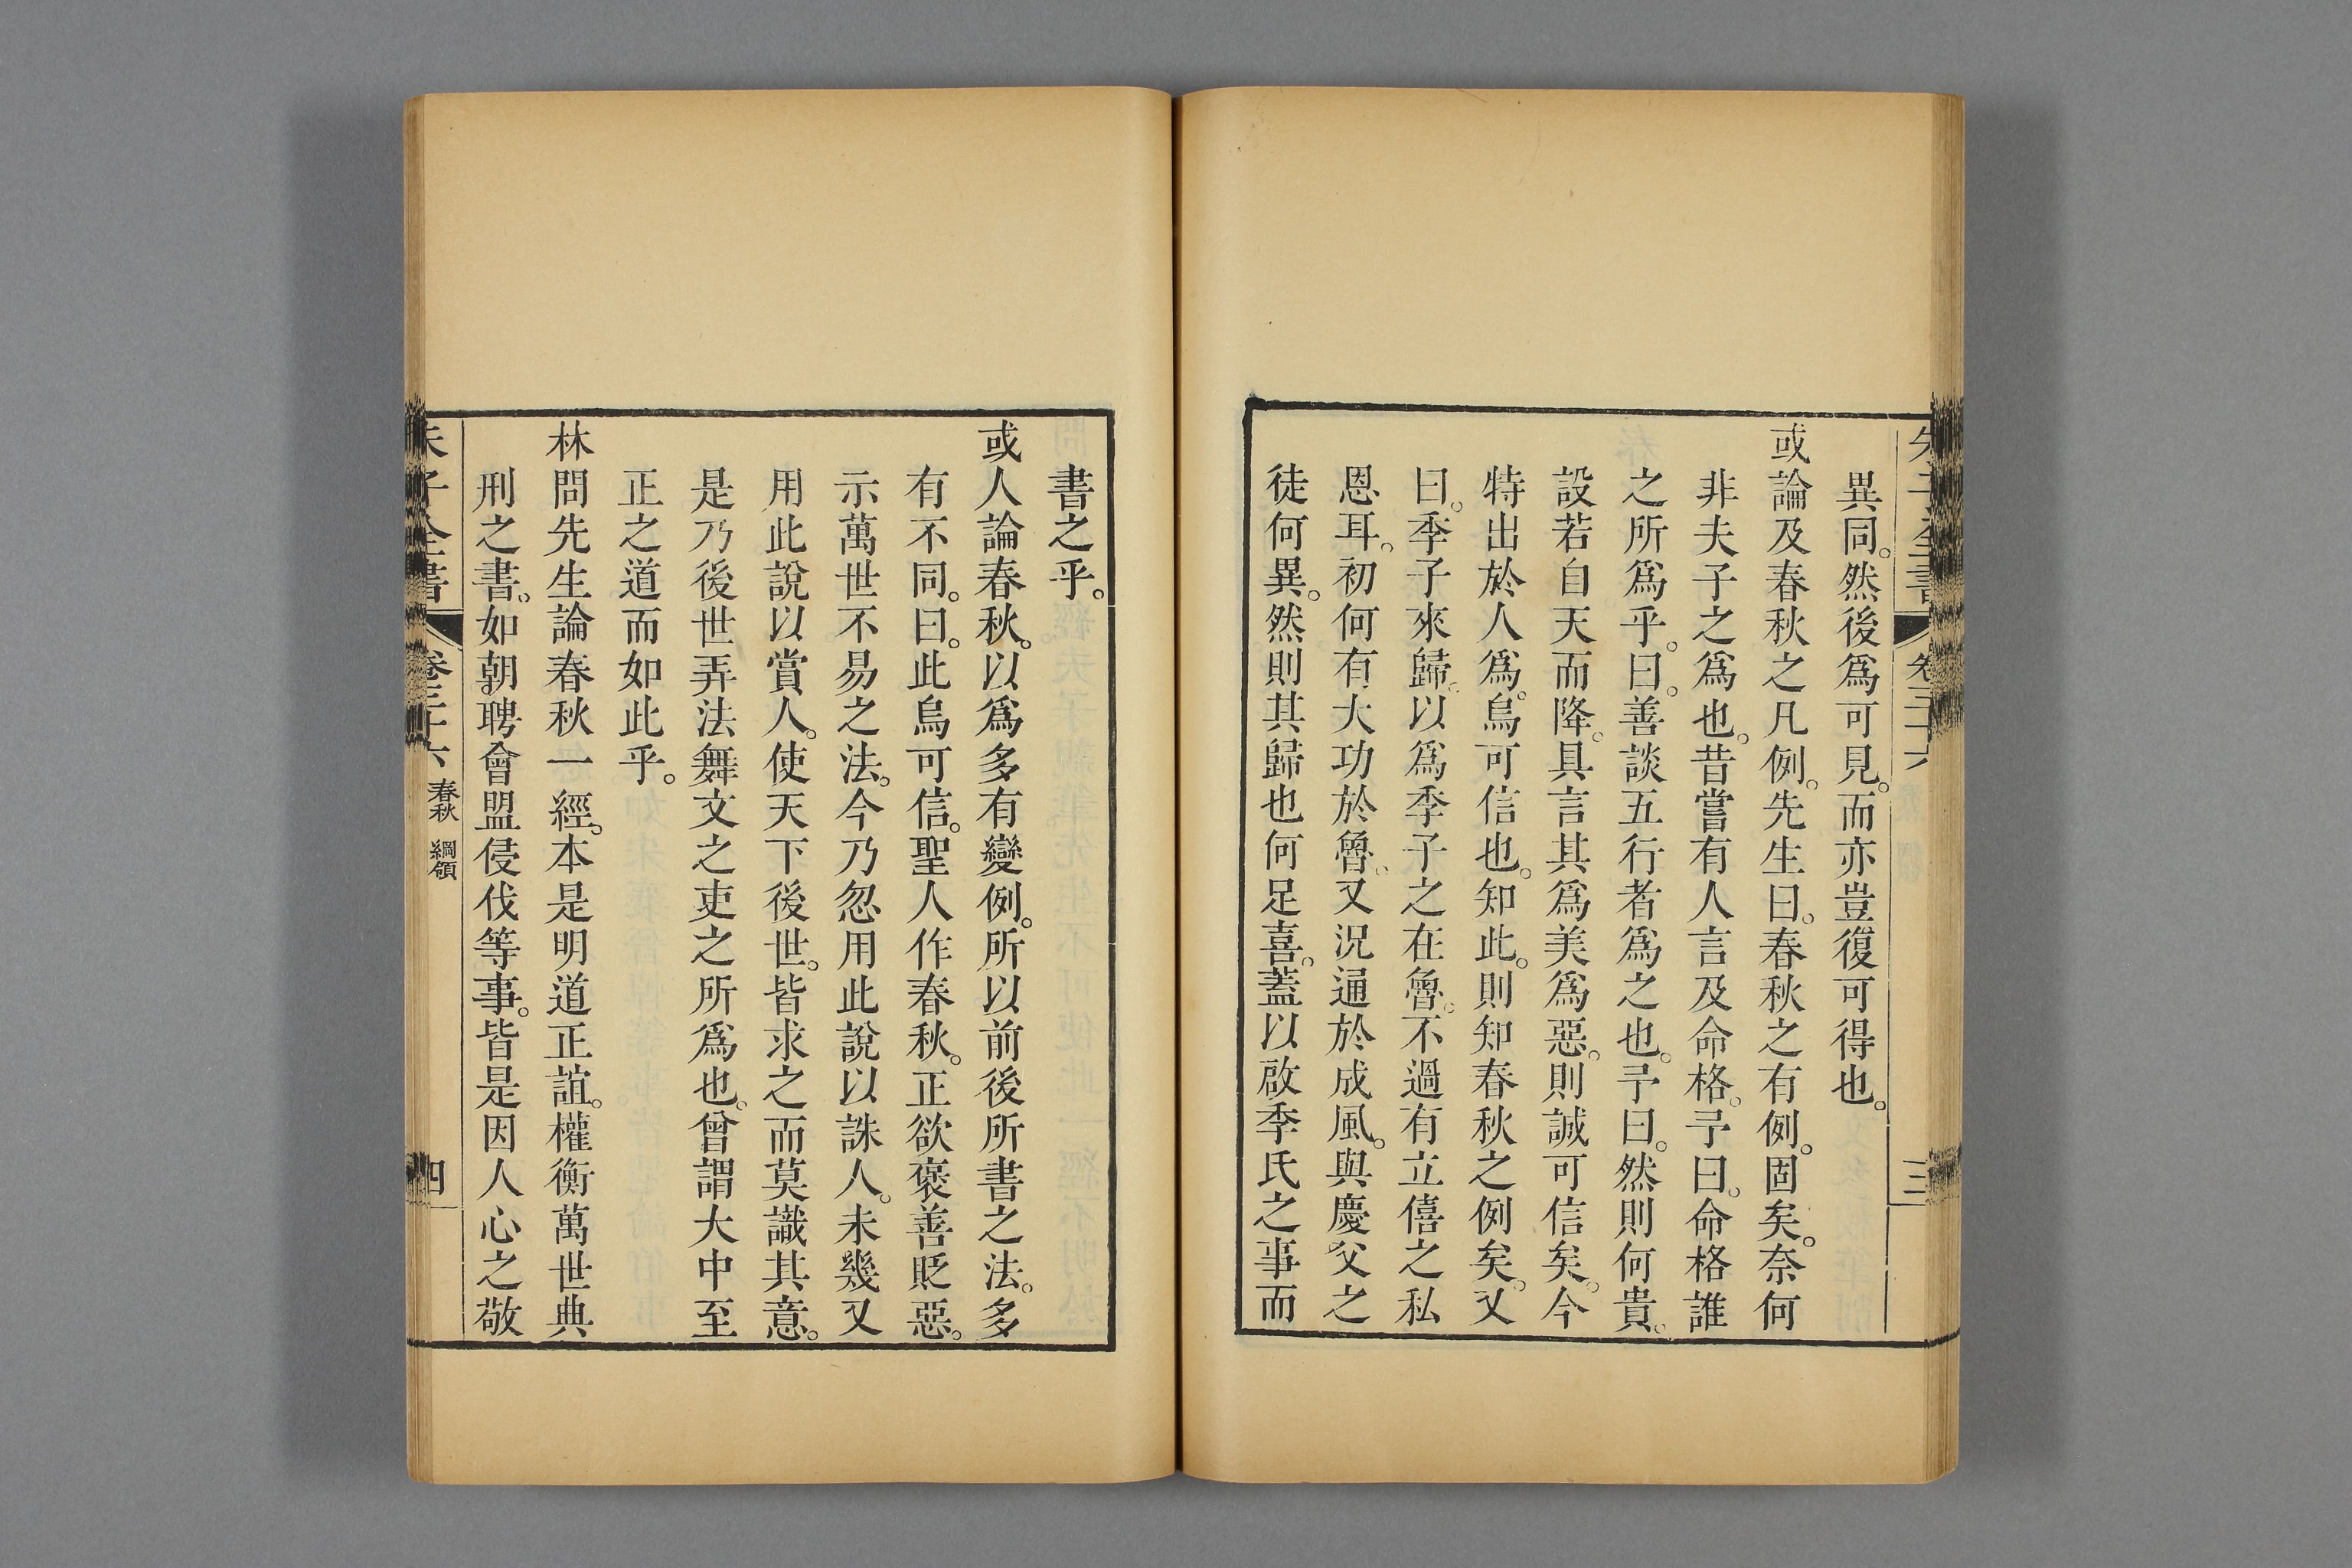 異同。然後爲可見。而亦豈復可得也。
或論及春秋之凡例。先生曰。春秋之有例。固矣。奈何
非夫子之爲也。昔嘗有人言及命格。予曰。命格誰
之所爲乎。曰。善談五行者爲之也。予曰。然則何貴。
設若自天而降。具言其爲美爲惡。則誠可信矣。今
特出於人爲。烏可信也。知此。則知春秋之例矣。又
曰。季子來歸。以爲季子之在魯。不過有立僖之私
恩耳。初何有大功於魯。又況通於成風。與慶父之
徒何異。然則其歸也何足喜。蓋以啟季氏之事而
書之乎。
或人論春秋。以爲多有變例。所以前後所書之法。多
有不同。曰。此烏可信。聖人作春秋。正欲褒善貶惡。
示萬世不易之法。今乃忽用此說以誅人。未幾又
用此說以賞人。使天下後世。皆求之而莫識其意。
是乃後世弄法舞文之吏之所爲也。曾謂大中至
正之道而如此乎。
林問先生論春秋一經。本是明道正誼。權衡萬世典
刑之書。如朝聘會盟侵伐等事。皆是因人心之敬
朱子全書 卷三十六 春秋 綱領 四